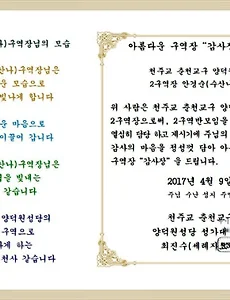 나)구역장님의 모습
산나)구역장님은
운 보석으로
빛나게 합니다
운 마음으로
이끌어 갑니다
산나)구역장님은
을 빛내는
같습니다
양덕원성당의
구역으로
나게 하는
천사 같습니다
아름다운 구역장 "감사장
천주교 춘천교구 양덕원
2구역장 안경순(수산나
위 사람은 천주교 춘천교구 양덕
2구역장으로써, 2구역반모임을
열심히 담당 하고 계시기에 주님의
감사의 마음을 정성껏 담아 아
구역장 "감사장" 을 드립니다.
2017년 4월 9일
주님 수난 성지 주
천주교 춘천교구
양덕원성당 성가대
최진수(세례자